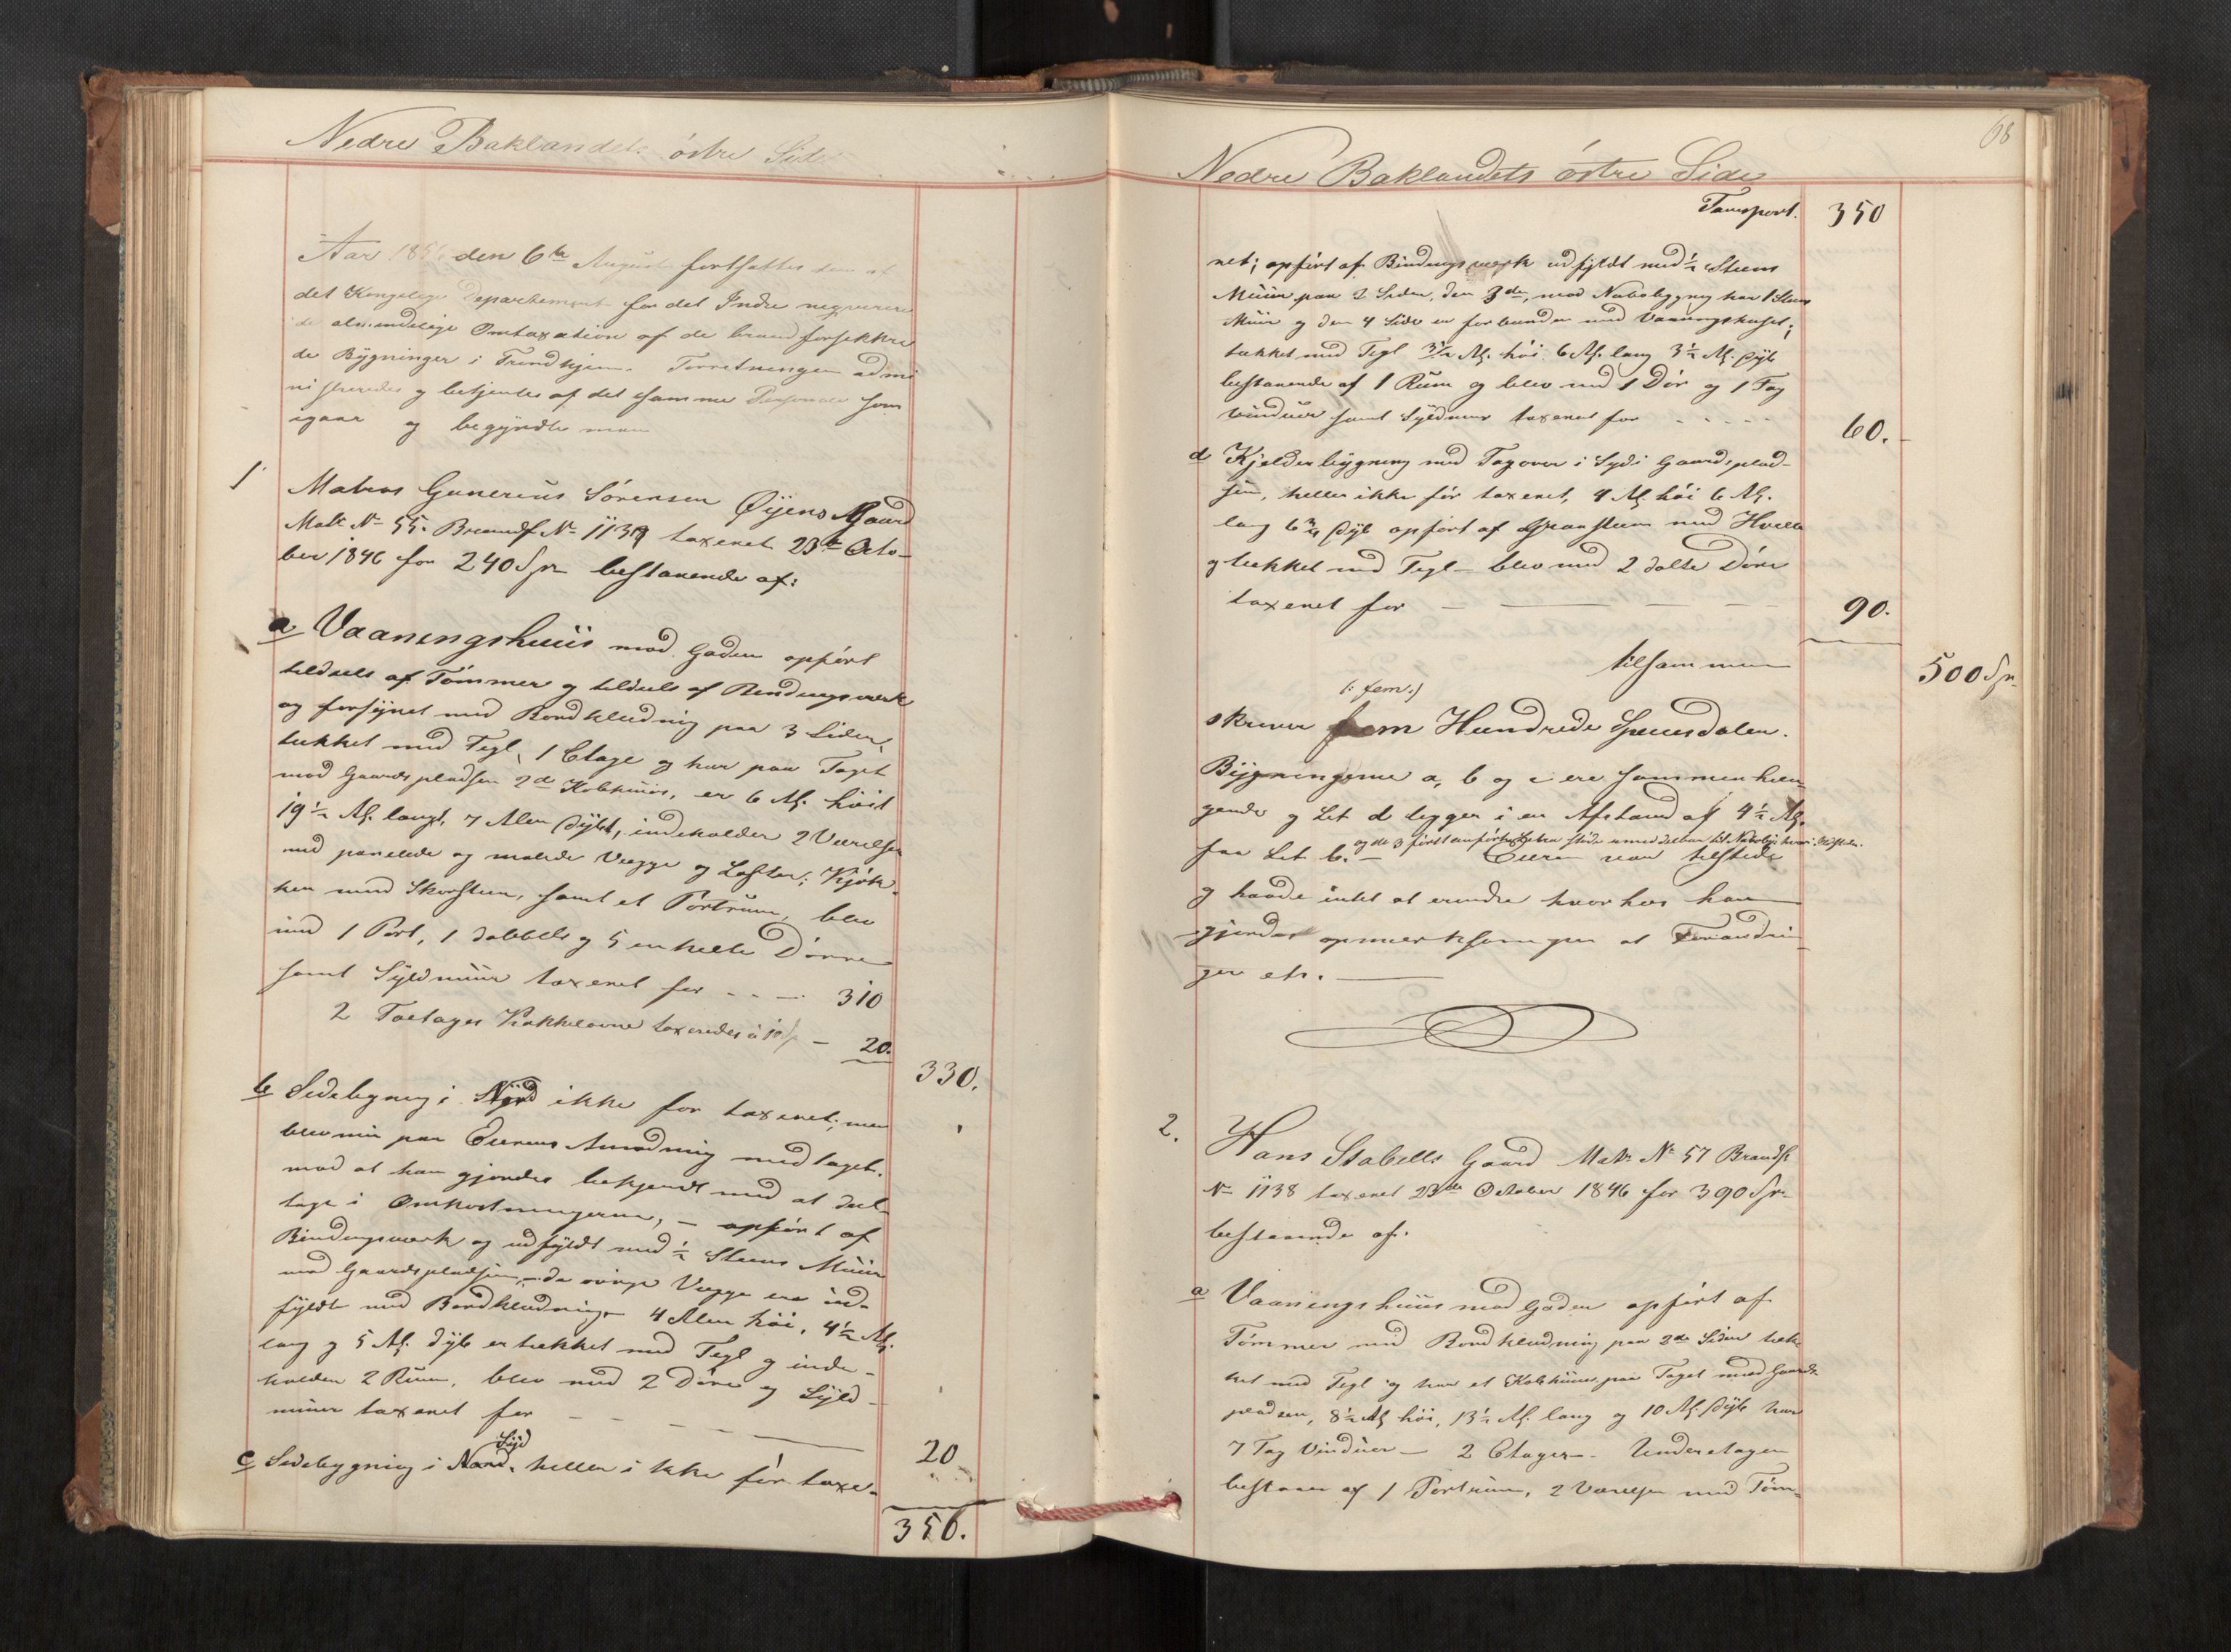 Nedre Baklandets östre Side
Aar 185 den 6te August fortsattes den af
det Kongelige Departement for det Indre
de almindelige Omtaxation af de brandforsikkre
de Bÿgninger i Trondhjem. Forretningen admi
nistreredes og betjentes af det samme Personale som
igaar og begÿndte man
1 Matros Gunerius Sörensen Øÿens Gaard
Matr No 55. Brandf No 1139 taxeret 23de Octo-
ber 1846 for 240 Spr bestaaende af:
a Vaaningshuus mod Gaden opfört
tildeels af Tömmer og tildeels af Bindingsverk
og forsÿnet med Bordklædning paa 3 Sider,
tækket med Tegl, 1 Etage og har paa Taget
mod Gaardspladsen 2de Kobhuus, er 6 Al. höit
19½ Al. langt, 7 Alen dÿbt, indeholder 2 Værelser
med panelede og malede Vægge og Lofter; Kjök-
ken med Skorsteen, samt et Portrum, blev
med 1 Port, 1 dobbelt og 5 enkelte Dörre
samt Sÿldmuur taxeret for - - - 310
2 Toetages Kakkelovne taxeredes à 10 Sp – 20.
330.
b Sidebygning i Nord ikke før taxeret, men
blev nu paa Eierens Anmodning medtaget.
mod at han gjordes bekjendt med at deel-
tage i Omkostningerne, – opfört af
Bindingsverk og udfÿldt med ½ Steens Muur
mod Gaardspladsen – de övrige Vægge ere ud-
fÿldt med Bordklædning 4 Alen höi, 4½ Al.
lang og 5 Al. dÿb er tækket med Tegl og inde-
holder 2 Rum, blev med 2 Döre og Sÿld-
muur taxeret for - - - 20
Sÿd
c Sidebygning i Nord. heller ikke för taxe-
350.
68
Nedre Baklandets östre Side
Transport. 350
ret; opfört af Bindingsverk udfÿldt med ½ Steens
Muur paa 2 Sider, den 3de, mod Nabobygng har 1 Steens
Muur og den 4 Side er forbunden med Vaaningshuset;
tækket med Tegl 3½ Al. höi 6 Al. lang 3½ Al. dÿb
bestaaende af 1 Rum og blev med 1 Dör og 1 Fag
Vinduer samt Sÿldmuur taxeret for - - - - - 60.
d Kjelderbÿgning med Tag over i Sÿd i Gaardsplad-
sen, heller ikke för taxeret, 4 Al. höi 6 Al.
lang 6¾ dÿb opfört af Graasteen med Hvælv
og tækket med Tegl – blev med 2 dolte Döre
taxeret for – – – – 90.
tilsammen 500 Spr.
(: fem :)
skriver fem Hundrede Speciesdaler.
Bÿgningerne a, b og c ere sammenhæn-
gende og Lit d ligger i en Afstand af 4½ Al.
og de 3 först anförte Litra stöde umiddelbar til Nabobÿg.
fra Lit b. – Eieren var tilstede
og havde intet at erindre hvorhos han
gjordes opmærksom paa at Forandrin-
ger etc. –
2. Hans Stabells Gaard Matr No 57 Brandf
No 1138 taxeret 23de October 1846 for 390 Spr
bestaaende af.
a Vaaningshuus mod Gaden opfört af
Tömmer med Bordklædning paa 2de Sider tæk-
ket med Tegl og har et Kobhuus paa Taget mod Gaards-
pladsen, 8½ Al höi, 13½ Al. lang og 10 Al. dÿb har
7 Fag Vinduer – 2 Etager – Underetagen
bestaaer af 1 Portrum, 2 Værelser med Töm-